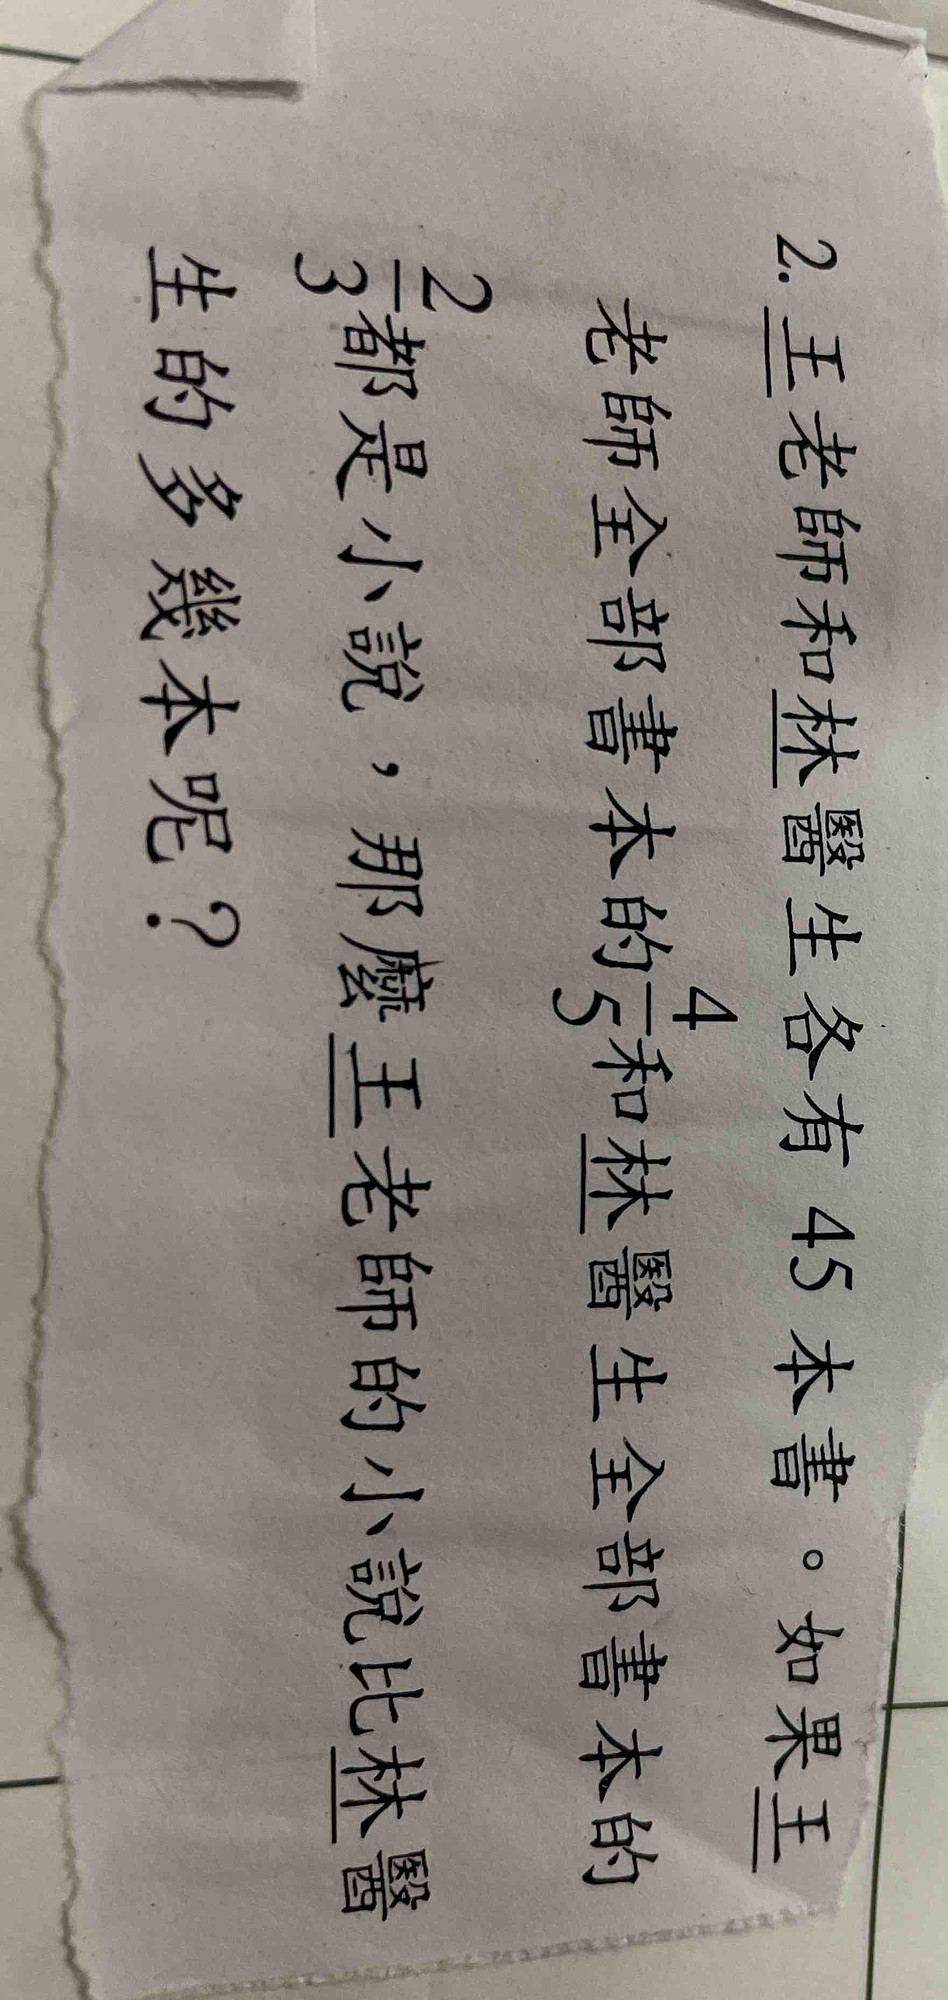 2. 王老師和林醫生各有45本書。如果王
老師全部書本的4/5和林醫生全部書本的
2/3都是小說，那麼王老師的小說比林醫
生的多幾本呢？